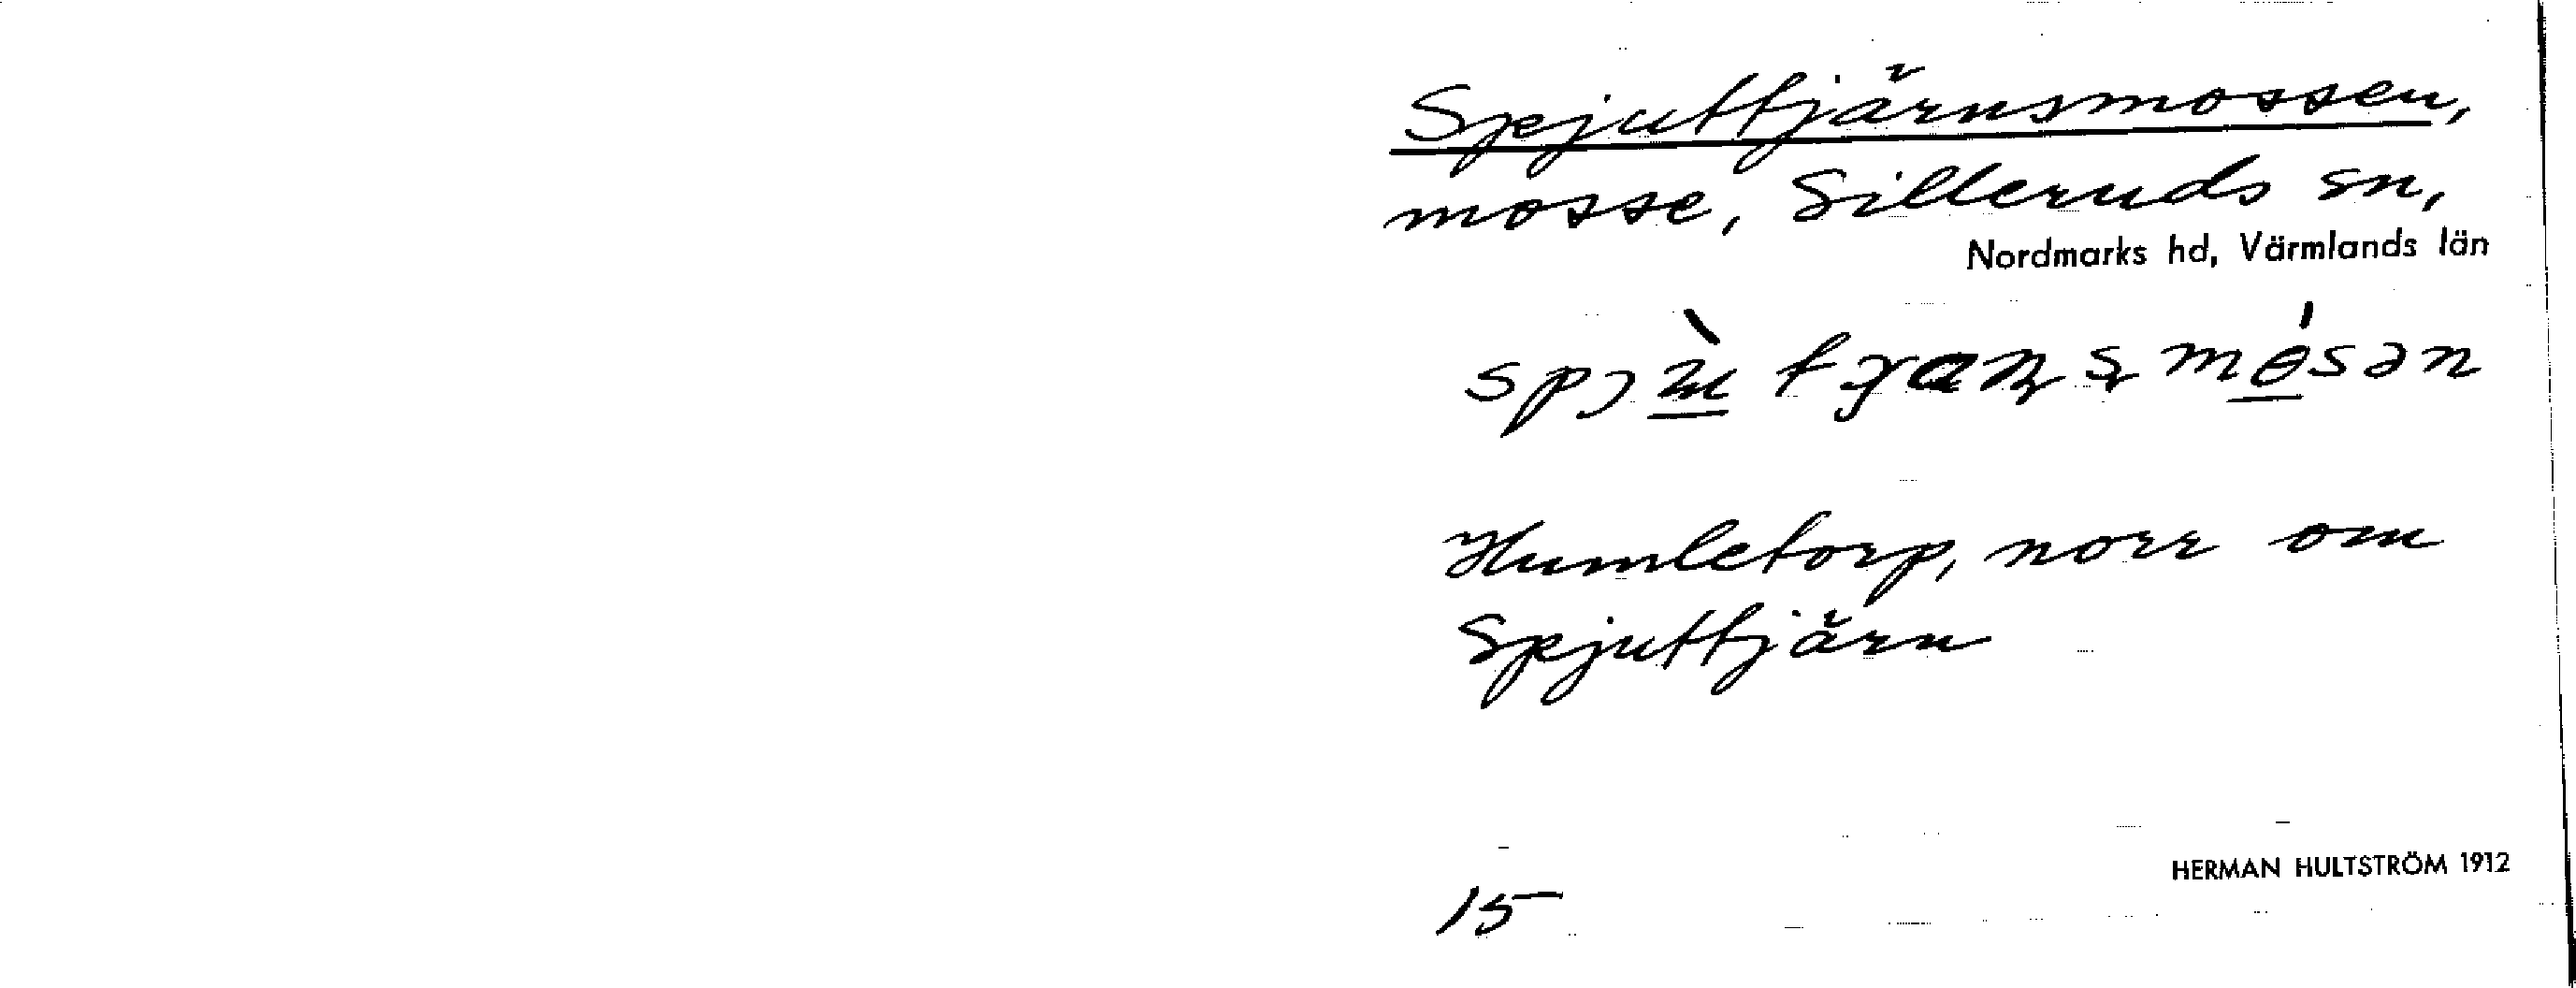 Spjuttjärnsmossen,
mosse, Silleruds sn,
Nordmarks hd, Värmlands län
Humletorp, norr om
Spjuttjärn
HERMAN HULTSTRÖM 1912
15